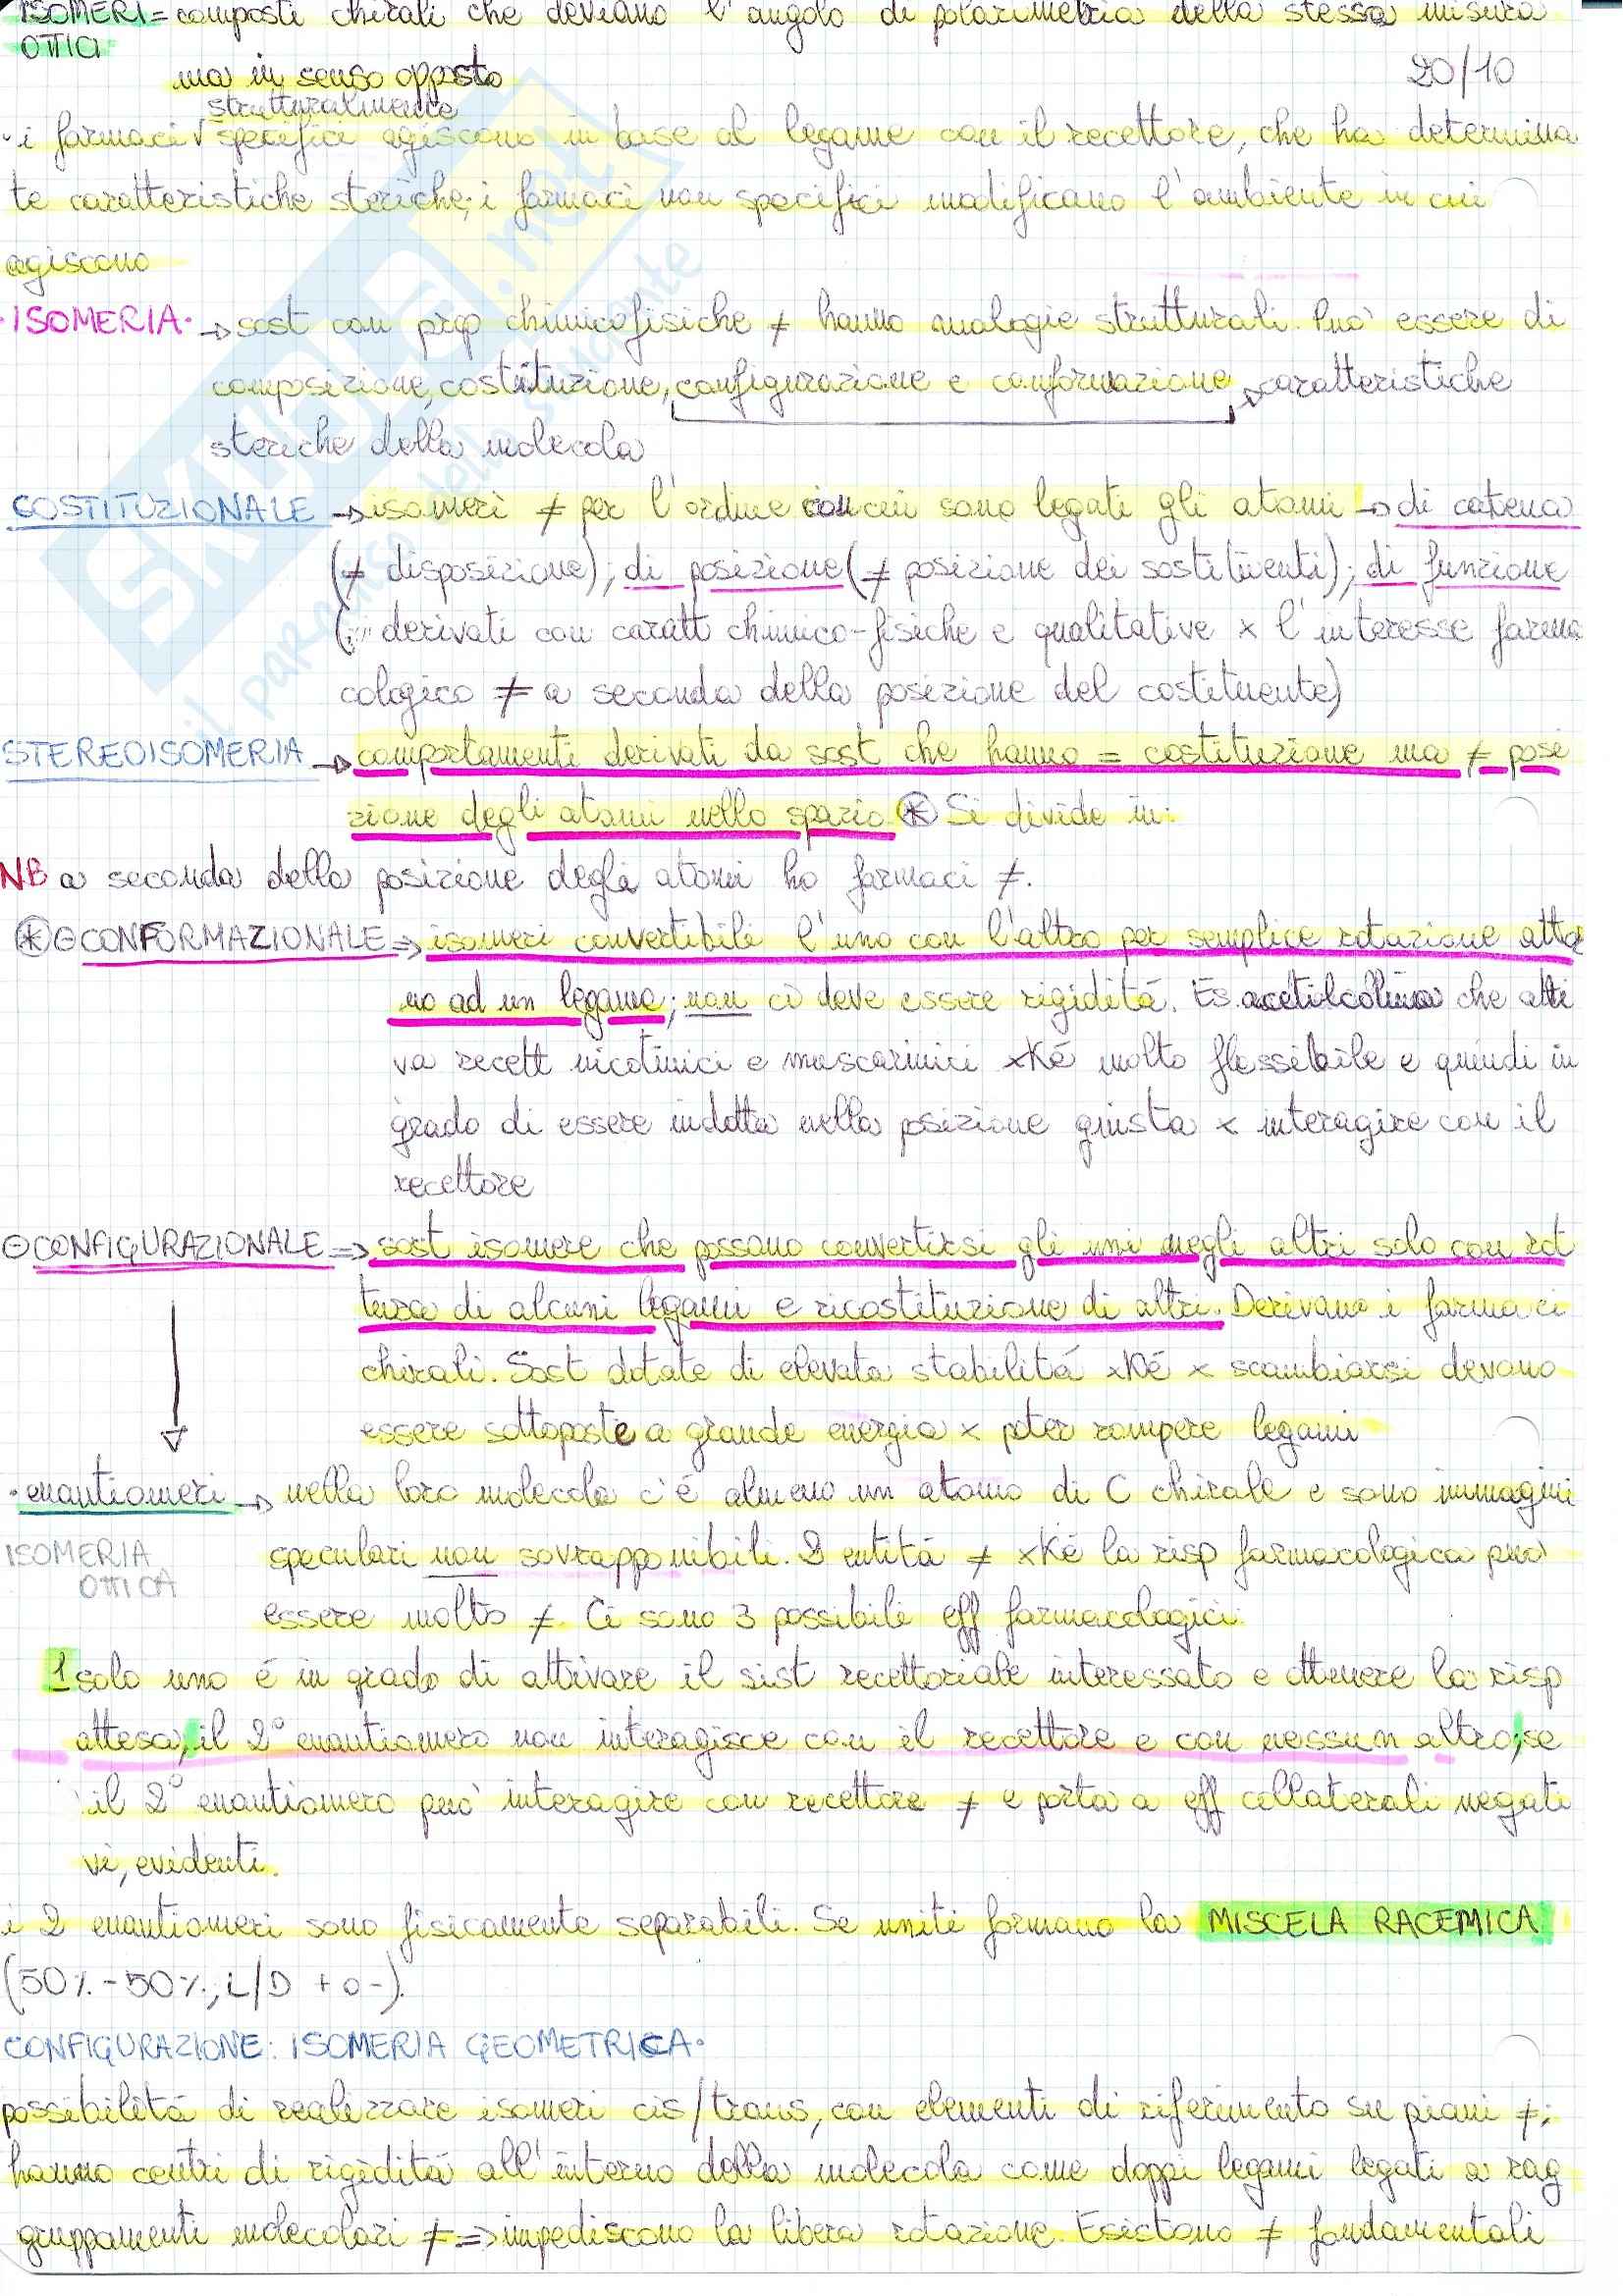 ISOMERI = composti chirali che deviano l'angolo di polarimetria della stessa misura
OTTICI
ma in senso opposto
20/10
strutturalmente
• i farmaci √ specifici agiscono in base al legame con il recettore, che ha determina
te caratteristiche steriche; i farmaci non specifici modificano l'ambiente in cui
agiscono
• ISOMERIA • → sost con prop chimicofisiche ≠ hanno analogie strutturali. Può essere di
composizione, costituzione, configurazione e conformazione → caratteristiche
steriche della molecola
COSTITUZIONALE → isomeri ≠ per l'ordine con cui sono legati gli atomi → di catena
(≠ disposizione); di posizione (≠ posizione dei sostituenti); di funzione
( derivati con caratt chimico-fisiche e qualitative x l'interesse farma
cologico ≠ a seconda della posizione del costituente)
STEREOISOMERIA → comportamenti derivati da sost che hanno = costituzione ma ≠ posi
zione degli atomi nello spazio. * Si divide in:
NB a seconda della posizione degli atomi ho farmaci ≠.
* ⊖ CONFORMAZIONALE ⇒ isomeri convertibili l'uno con l'altro per semplice rotazione atto
no ad un legame; non ci deve essere rigidità. Es. acetilcolina che atti
va recett nicotinici e muscarinici xKé molto flessibile e quindi in
grado di essere indotta nella posizione giusta x interagire con il
recettore
⊖ CONFIGURAZIONALE ⇒ sost isomere che possono convertirsi gli uni negli altri solo con rot
tura di alcuni legami e ricostituzione di altri. Derivano i farmaci
chirali. Sost dotate di elevata stabilità xKé x scambiarsi devono
essere sottoposte a grande energia x poter rompere legami
• enantiomeri → nella loro molecola c'é almeno un atomo di C chirale e sono immagini
ISOMERIA OTTICA
speculari non sovrapponibili. 2 entità ≠ xKé la risp farmacologica può
essere molto ≠. Ci sono 3 possibili eff farmacologici:
1 solo uno é in grado di attivare il sist recettoriale interessato e ottenere la risp
attesa; il 2° enantiomero non interagisce con il recettore e con nessun altro; se
il 2° enantiomero può interagire con recettore ≠ e porta a eff collaterali negati
vi, evidenti.
i 2 enantiomeri sono fisicamente separabili. Se uniti formano la MISCELA RACEMICA
(50% - 50%, L/D + o -).
CONFIGURAZIONE: ISOMERIA GEOMETRICA •
possibilità di realizzare isomeri cis/trans, con elementi di riferimento su piani ≠;
hanno centri di rigidità all'interno della molecola come doppi legami legati a rag
gruppamenti molecolari ≠ ⇒ impediscono la libera rotazione. Esistono ≠ fondamentali
SKUOLA.net
il paradiso dello studente